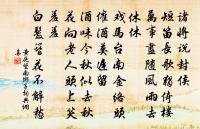 諸將說封侯
短笛長歌獨倚樓
萬事盡隨風雨去
休休
戲馬台南金絡頭
催酒莫遲留
酒味今秋似去秋
花向老人頭上笑
羞羞
白髮簪花不解愁
黃庭堅南鄉子